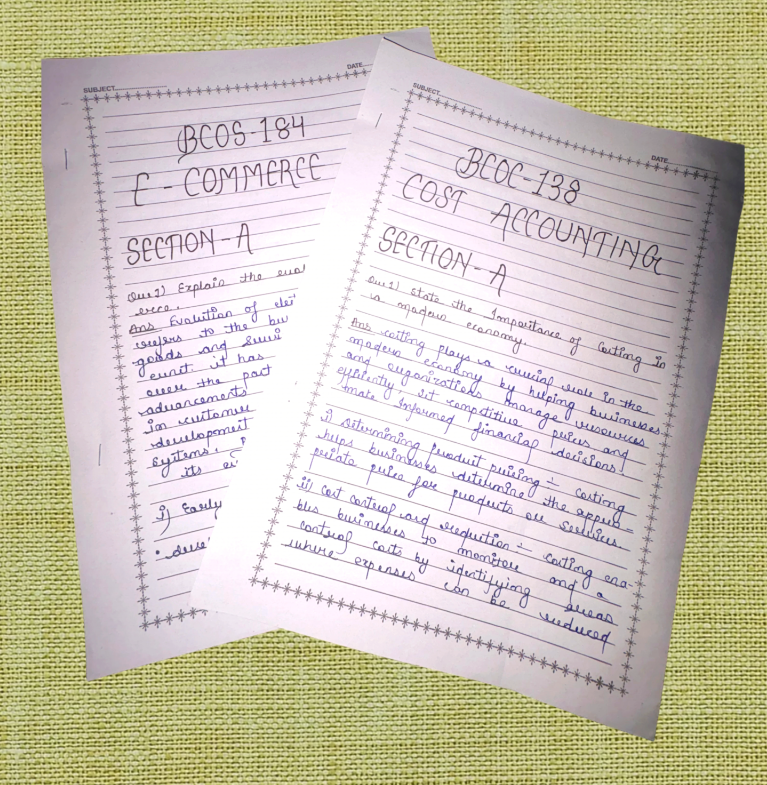 SUBJECT
DATE
BCOS-184
E-COMMERCE
SECTION-A
Que1) Explain the evol
erce.
Ans Evolution of elec
refers to the bu
goods and servi
ernit. it has
over the past
advancements
in customer
development
systems.
its
i) Early
SUBJECT
DATE
BCOC-138
COST ACCOUNTING
SECTION-A
Que1) State the Importance of Costing in
a modern economy.
Ans costing plays a crucial role in the
modern economy by helping businesses
and organizations manage resources
efficiently set competitive prices and
make Informed financial decisions.
i) Determining product pricing :- costing
helps businesses determine the appro-
priate price for products or services.
ii) cost control and reduction :- costing ena-
bles businesses to monitor and a
control costs by identifying areas
where expenses can be reduced